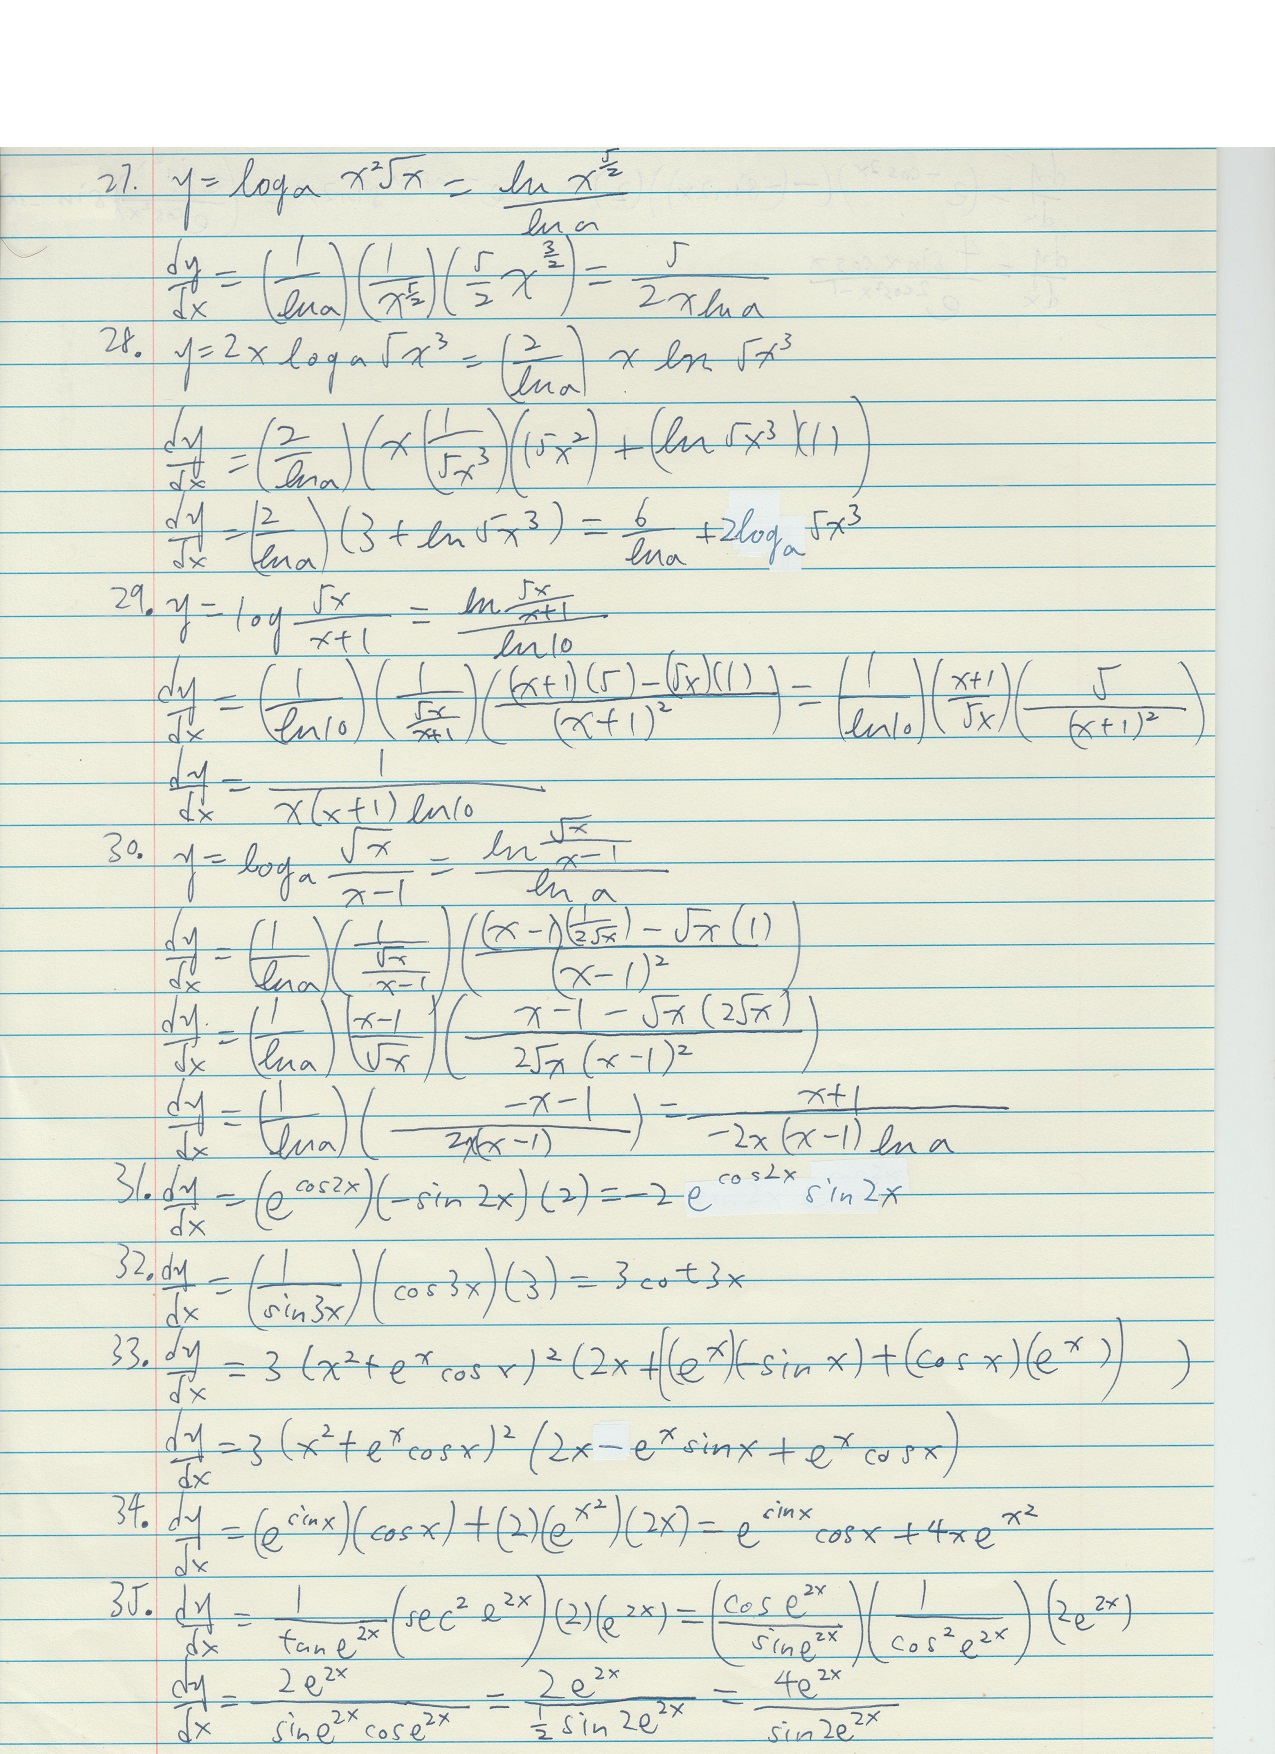 27. y = log_a x²√x = ln x^(5/2) / ln a
dy/dx = (1/ln a)(1/x^(5/2))(5/2 x^(3/2)) = 5/(2x ln a)
28. y = 2x log_a 5x³ = (2/ln a) x ln 5x³
dy/dx = (2/ln a)(x(1/5x³)(15x²) + (ln 5x³)(1))
dy/dx = (2/ln a)(3 + ln 5x³) = 6/ln a + 2log_a 5x³
29. y = log 5x/(x+1) = ln (5x/(x+1)) / ln 10
dy/dx = (1/ln 10)(1/(5x/(x+1)))(((x+1)(5) − (5x)(1))/(x+1)²) = (1/ln 10)((x+1)/5x)(5/(x+1)²)
dy/dx = 1/(x(x+1) ln 10)
30. y = log_a √x/(x−1) = ln (√x/(x−1)) / ln a
dy/dx = (1/ln a)(1/(√x/(x−1)))(((x−1)(1/(2√x)) − √x (1))/(x−1)²)
dy/dx = (1/ln a)((x−1)/√x)((x−1 − √x (2√x))/(2√x (x−1)²))
dy/dx = (1/ln a)((−x−1)/(2x(x−1))) = (x+1)/(−2x(x−1) ln a)
31. dy/dx = (e^(cos2x))(−sin 2x)(2) = −2 e^(cos2x) sin 2x
32. dy/dx = (1/sin3x)(cos 3x)(3) = 3 cot 3x
33. dy/dx = 3 (x² + e^x cos x)² (2x + ((e^x)(−sin x) + (cos x)(e^x)) )
dy/dx = 3 (x² + e^x cos x)² (2x − e^x sin x + e^x cos x)
34. dy/dx = (e^(sin x))(cos x) + (2)(e^(x²))(2x) = e^(sin x) cos x + 4x e^(x²)
35. dy/dx = 1/(tan e^(2x)) (sec² e^(2x))(2)(e^(2x)) = (cos e^(2x)/sin e^(2x))(1/cos² e^(2x))(2e^(2x))
dy/dx = 2e^(2x)/(sin e^(2x) cos e^(2x)) = 2e^(2x)/(1/2 sin 2e^(2x)) = 4e^(2x)/(sin 2e^(2x))